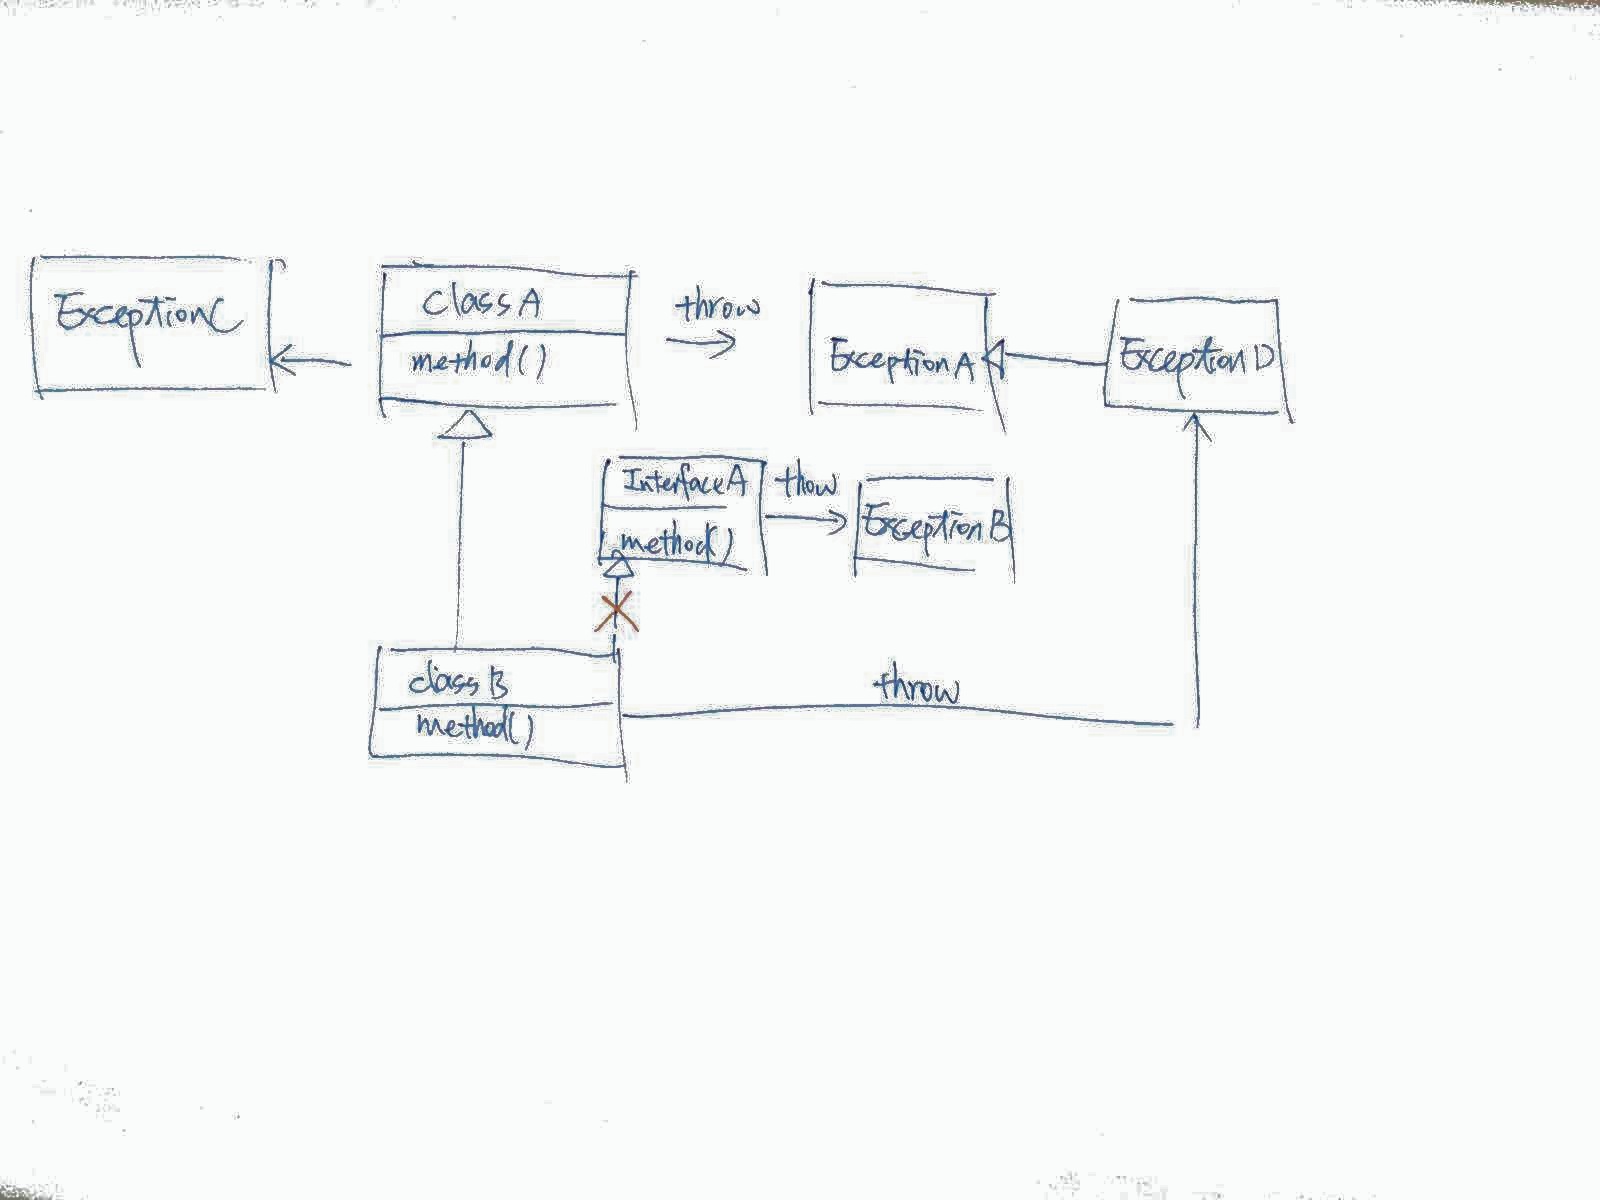 ExceptionC
classA
method()
throw
ExceptionA
ExceptionD
InterfaceA
method()
thow
ExceptionB
classB
method()
throw